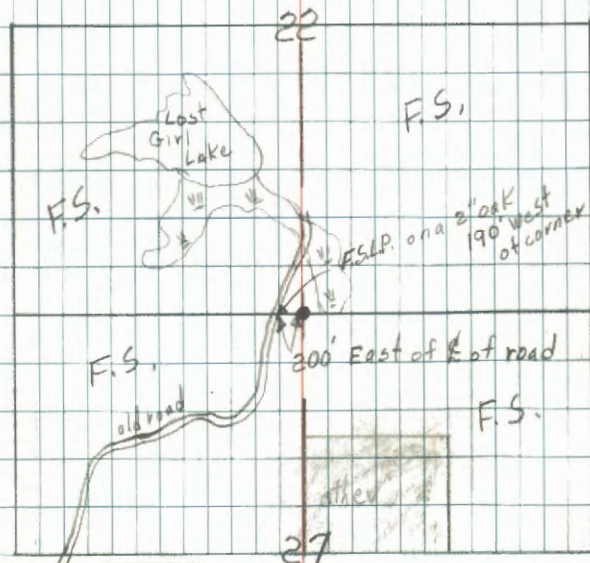 22
Lost
Girl
Lake
F.S.
F.S.
F.S.L.P. on a 2" oak
190' west
of corner
200' East of ℄ of road
F.S.
F.S.
old road
other
27